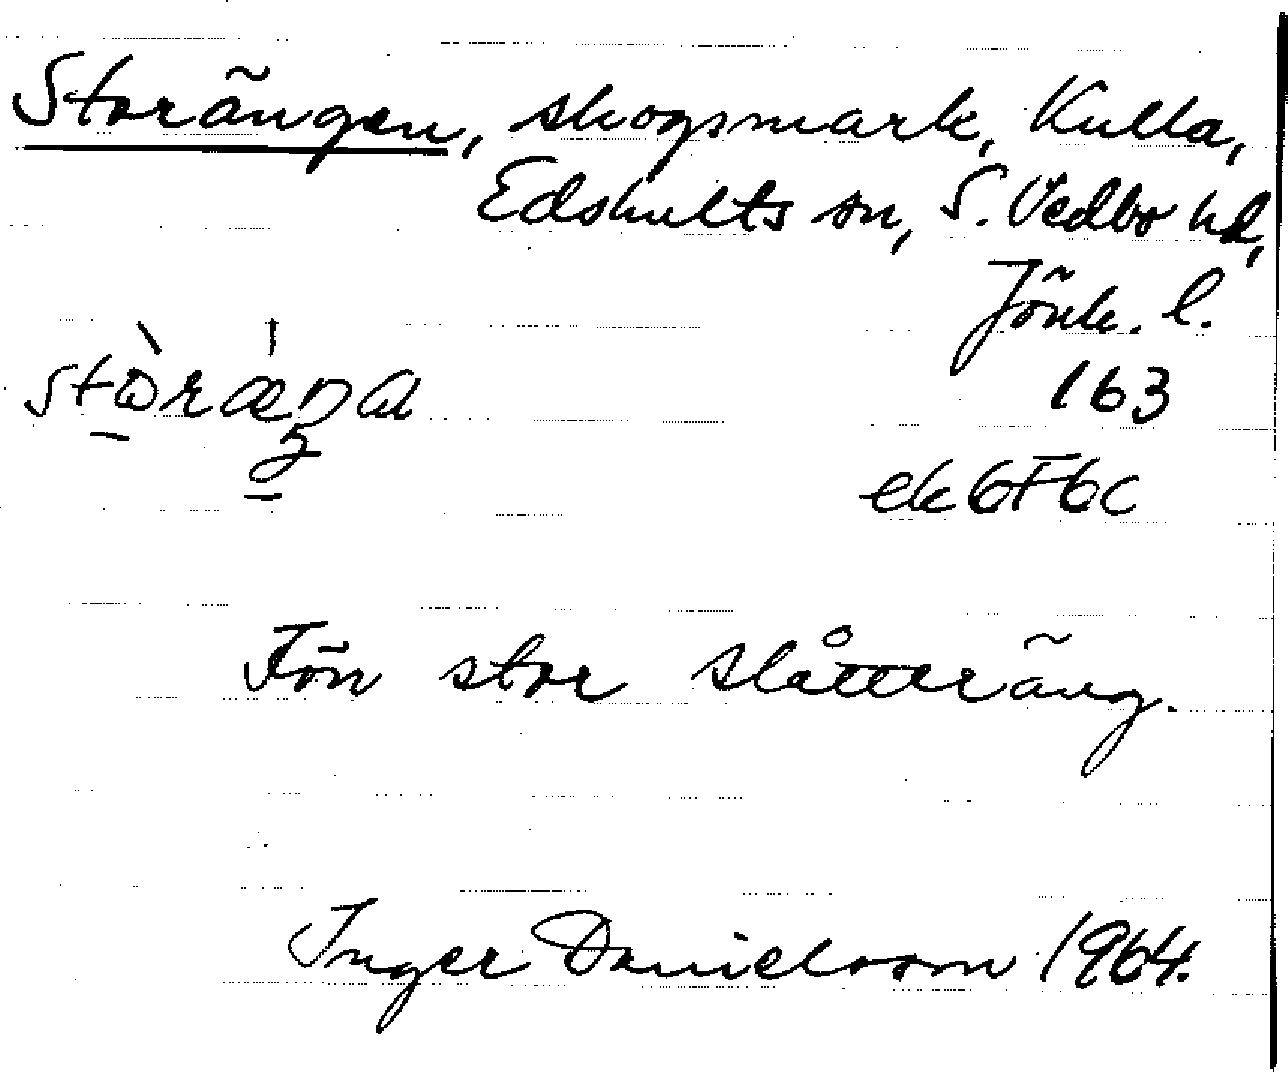 Storängen, skogsmark, Kulla,
Edshults sn, S. Vedbo hd,
Jönk. l.
163
ek 6F6c
Förr stor slåtteräng.
Inger Danielsson 1964.